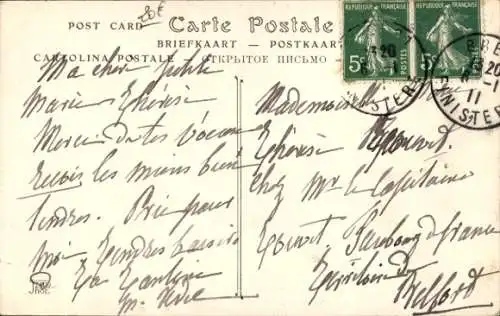 POST CARD
20€
Carte Postale
BRIEFKAART - POSTKAART
CARTOLINA POSTALE - ОТКРЫТОЕ ПИСЬМО
REPUBLIQUE FRANÇAISE
REPUBLIQUE FRANÇAISE
5c
POSTES
5c
20
11
FINISTERE
Ma chère petite
Marie Thérèse
Merci de tes vœux
Reçois les miens bien
tendres. Prie pour
moi. Tendres baisers
Ta Tantine
Mademoiselle
Thérèse
chez Mr le Capitaine
Faubourg de France
Territoire de
Belfort